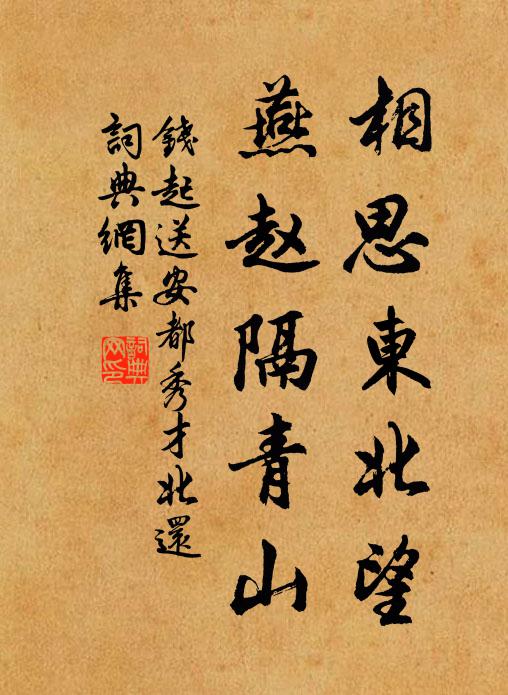 相思東北望
燕赵隔青山
錢起送安都秀才北還
詞典網集
詞典
网印